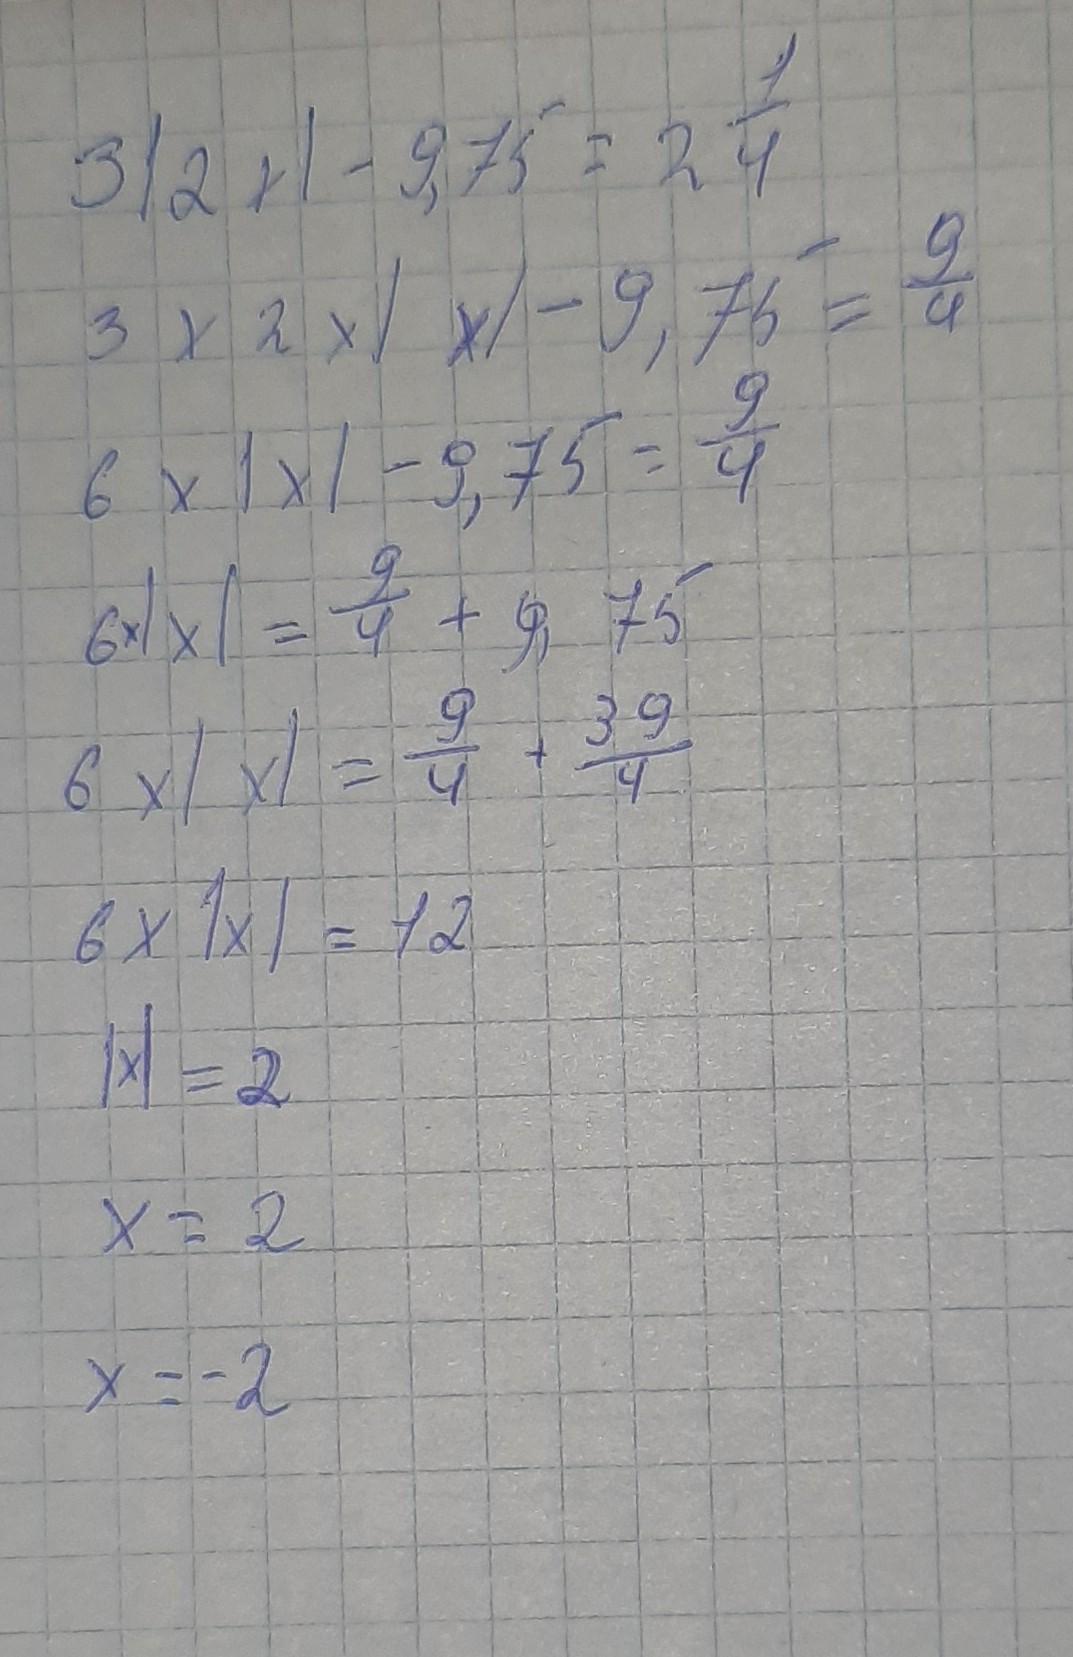 3|2x| - 9,75 = 2 1/4
3 x 2 x | x| - 9,75 = 9/4
6 x |x| - 9,75 = 9/4
6x|x| = 9/4 + 9,75
6 x| x| = 9/4 + 39/4
6 x |x| = 12
|x| = 2
x = 2
x = -2